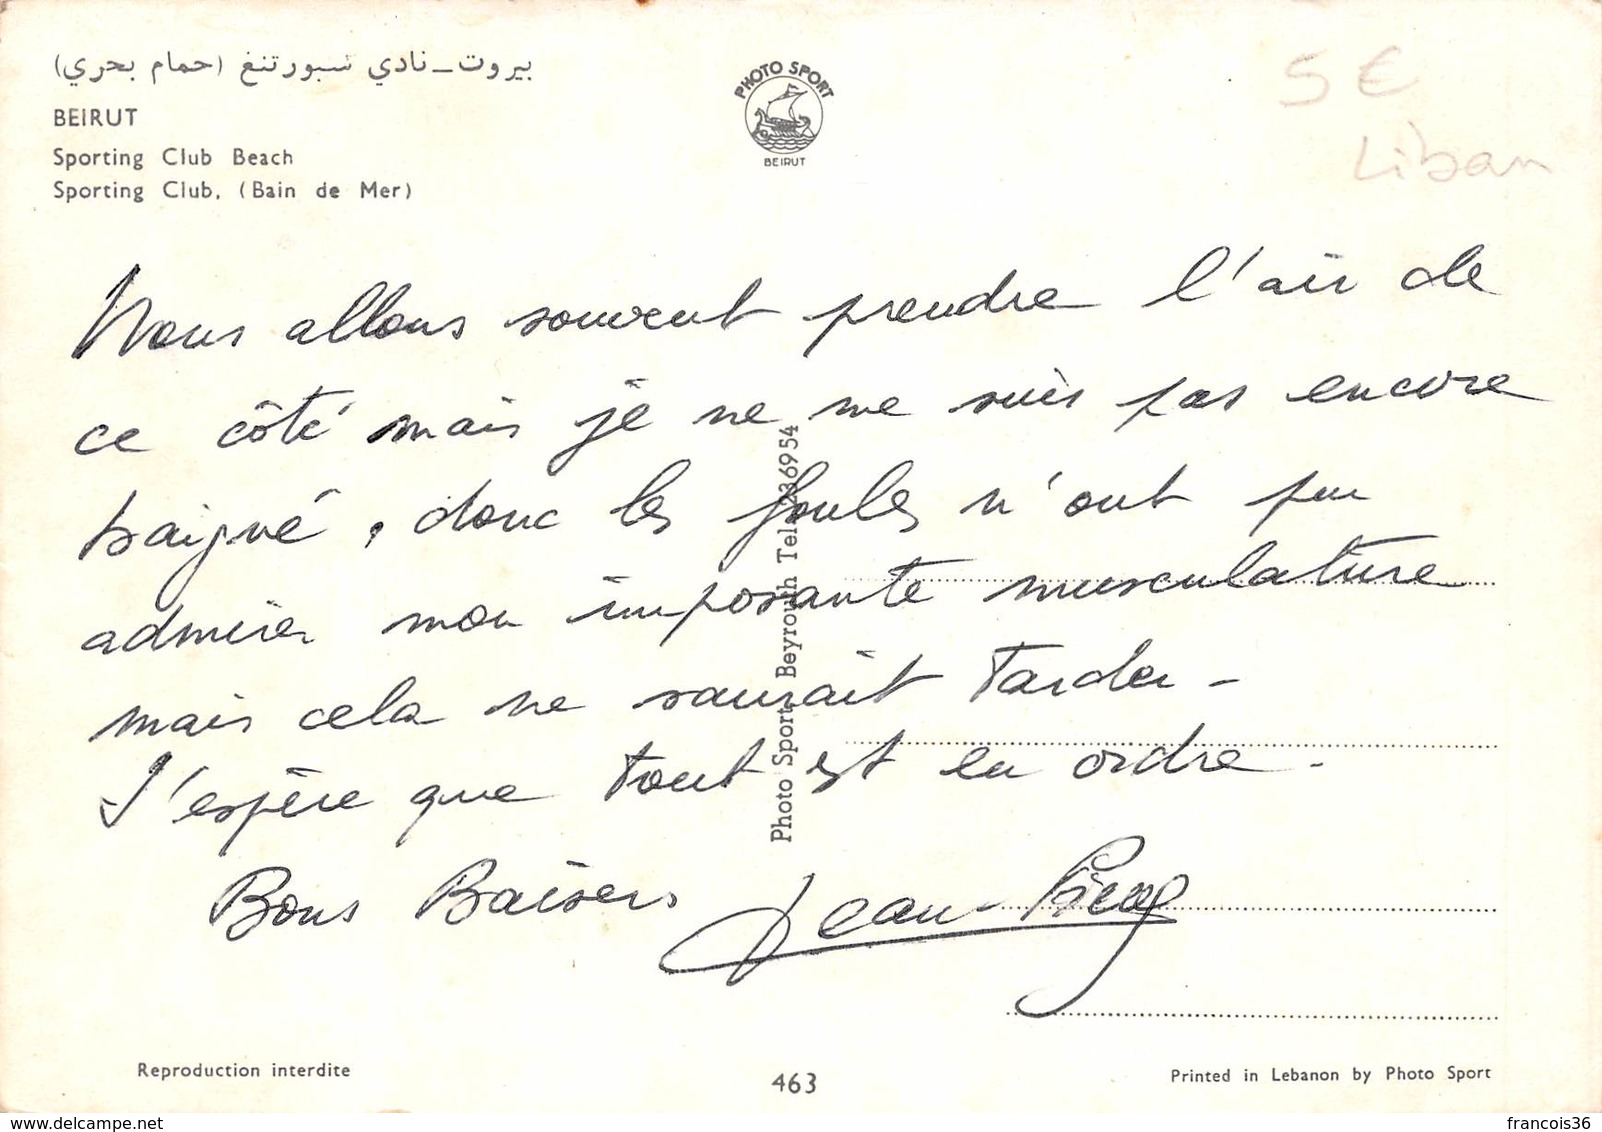 بيروت - نادي سبورتنغ (حمام بحري)
BEIRUT
Sporting Club Beach
Sporting Club, (Bain de Mer)
PHOTO SPORT
BEIRUT
5 €
Liban
Nous allons souvent prendre l'air de
ce côté mais je ne me suis pas encore
baigné, donc les foules n'ont pu
admirer mon imposante musculature
mais cela ne saurait tarder -
J'espère que tout est en ordre.
Bons Baisers Jean-Pierre
Photo Sport, Beyrouth Tel. 236954
Reproduction interdite
463
Printed in Lebanon by Photo Sport
delcampe.net
francois36